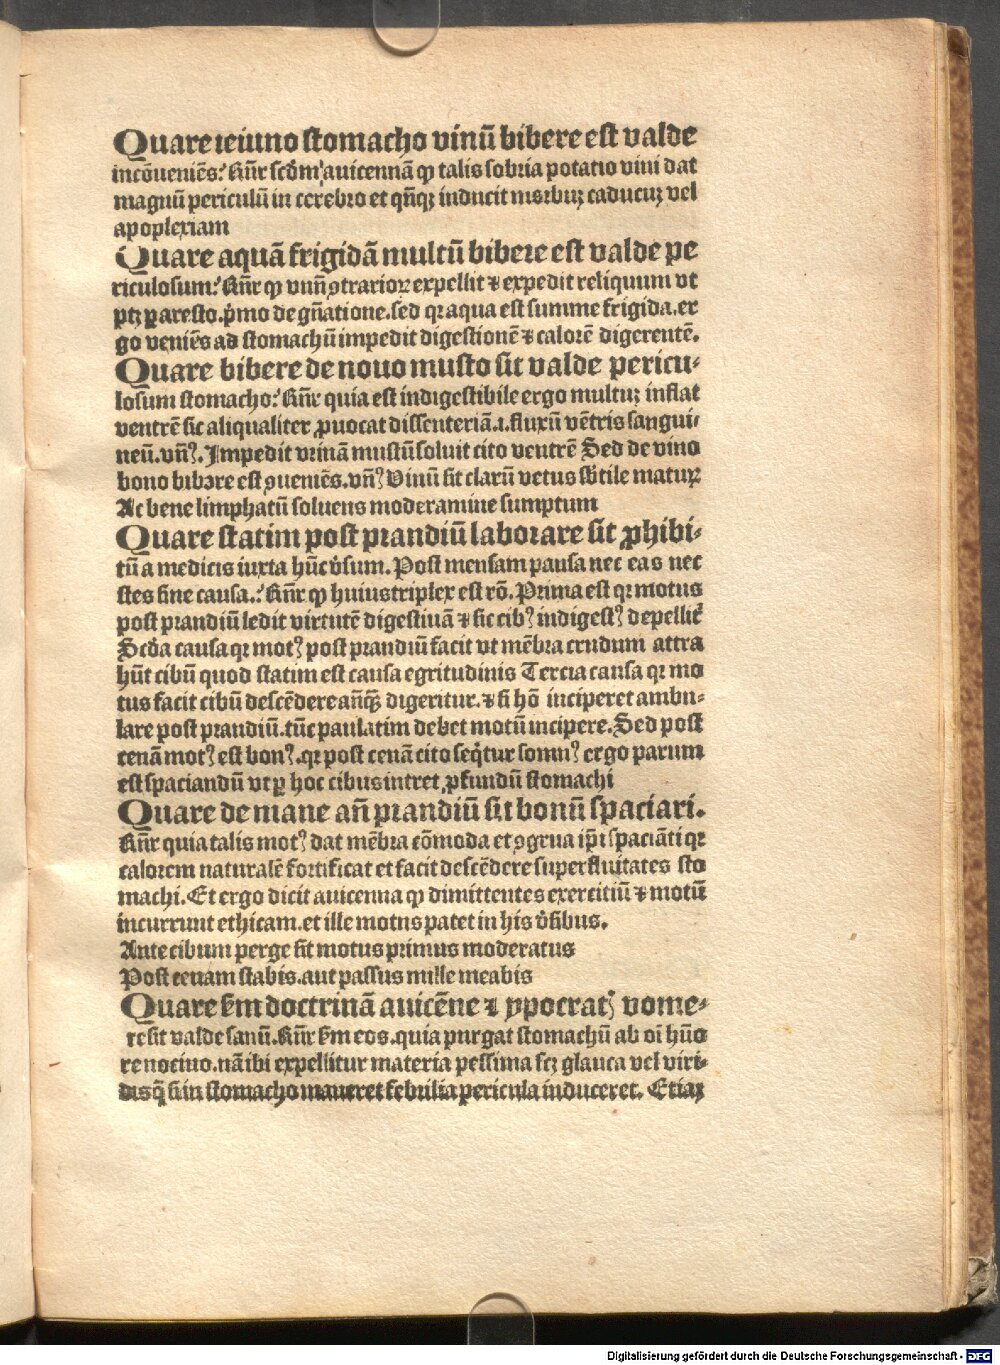 Quare ieiuno stomacho vinū bibere est valde
incōueniēs? Rñr scd̄m auicennā ꝙ talis sobria potatio vini dat
magnū periculū in cerebro et qñqꝫ inducit morbuꝫ caducuꝫ vel
apoplexiam
Quare aquā frigidā multū bibere est valde pe
riculosum? Rñr ꝙ vnū ꝯtrarioꝝ expellit ⁊ expedit reliquum vt
ptꝫ ꝑ aresto. p̄mo de gñatione. sed qꝛ aqua est summe frigida. er
go veniēs ad stomachū impedit digestionē ⁊ calorē digerentē.
Quare bibere de nouo musto sit valde pericu-
losum stomacho? Rñr quia est indigestibile ergo multuꝫ inflat
ventrē sic aliqualiter ꝓuocat dissenteriā .i. fluxū vētris sangui-
neū. vñꝰ. Impedit vrinā mustū soluit cito ventrē Sed de vino
bono bibere est ꝯueniēs. vñꝰ Vinū sit clarū vetus sb̄tile maturꝫ
Ac bene limphatū soluens moderamine sumptum
Quare statim post prandiū laborare sit ꝓhibi-
tū a medicis iuxta hūc v̄sum. Post mensam pausa nec eas nec
stes sine causa.? Rñr ꝙ huius triplex est rō. Prima est qꝛ motus
post prandiū ledit virtutē digestiuā ⁊ sic cibꝰ indigestꝰ depellit̄
Scd̄a causa qꝛ motꝰ post prandiū facit vt mēbra crudum attra
hūt cibū quod statim est causa egritudinis Tercia causa qꝛ mo
tus facit cibū descēdere añqꝫ̄ digeritur. ⁊ si hō inciperet ambu-
lare post prandiū. tūc paulatim debet motū incipere. Sed post
cenā motꝰ est bonꝰ. qꝛ post cenā cito seq̄tur somnꝰ ergo parum
est spaciandū vt ꝑ hoc cibus intret ꝓfundū stomachi
Quare de mane añ prandiū sit bonū spaciari.
Rñr quia talis motꝰ dat mēbra cōmoda et ꝯgrua ip̄i spaciāti qꝛ
calorem naturalē fortificat et facit descēdere superfluitates sto
machi. Et ergo dicit auicenna ꝙ dimittentes exercitiū ⁊ motū
incurrunt ethicam. et ille motus patet in his v̄sibus.
Ante cibum perge sit motus primus moderatus
Post cenam stabis. aut passus mille meabis
Quare s̄m doctrinā auicēne ⁊ ypocratꝭ vome-
re sit valde sanū. Rñr s̄m eos. quia purgat stomachū ab oī hūo
re nociuo. nā ibi expellitur materia pessima scꝫ glauca vel viri-
dis q̄ si in stomacho maneret febrilia pericula induceret. Etiaꝫ
Digitalisierung gefördert durch die Deutsche Forschungsgemeinschaft - DFG